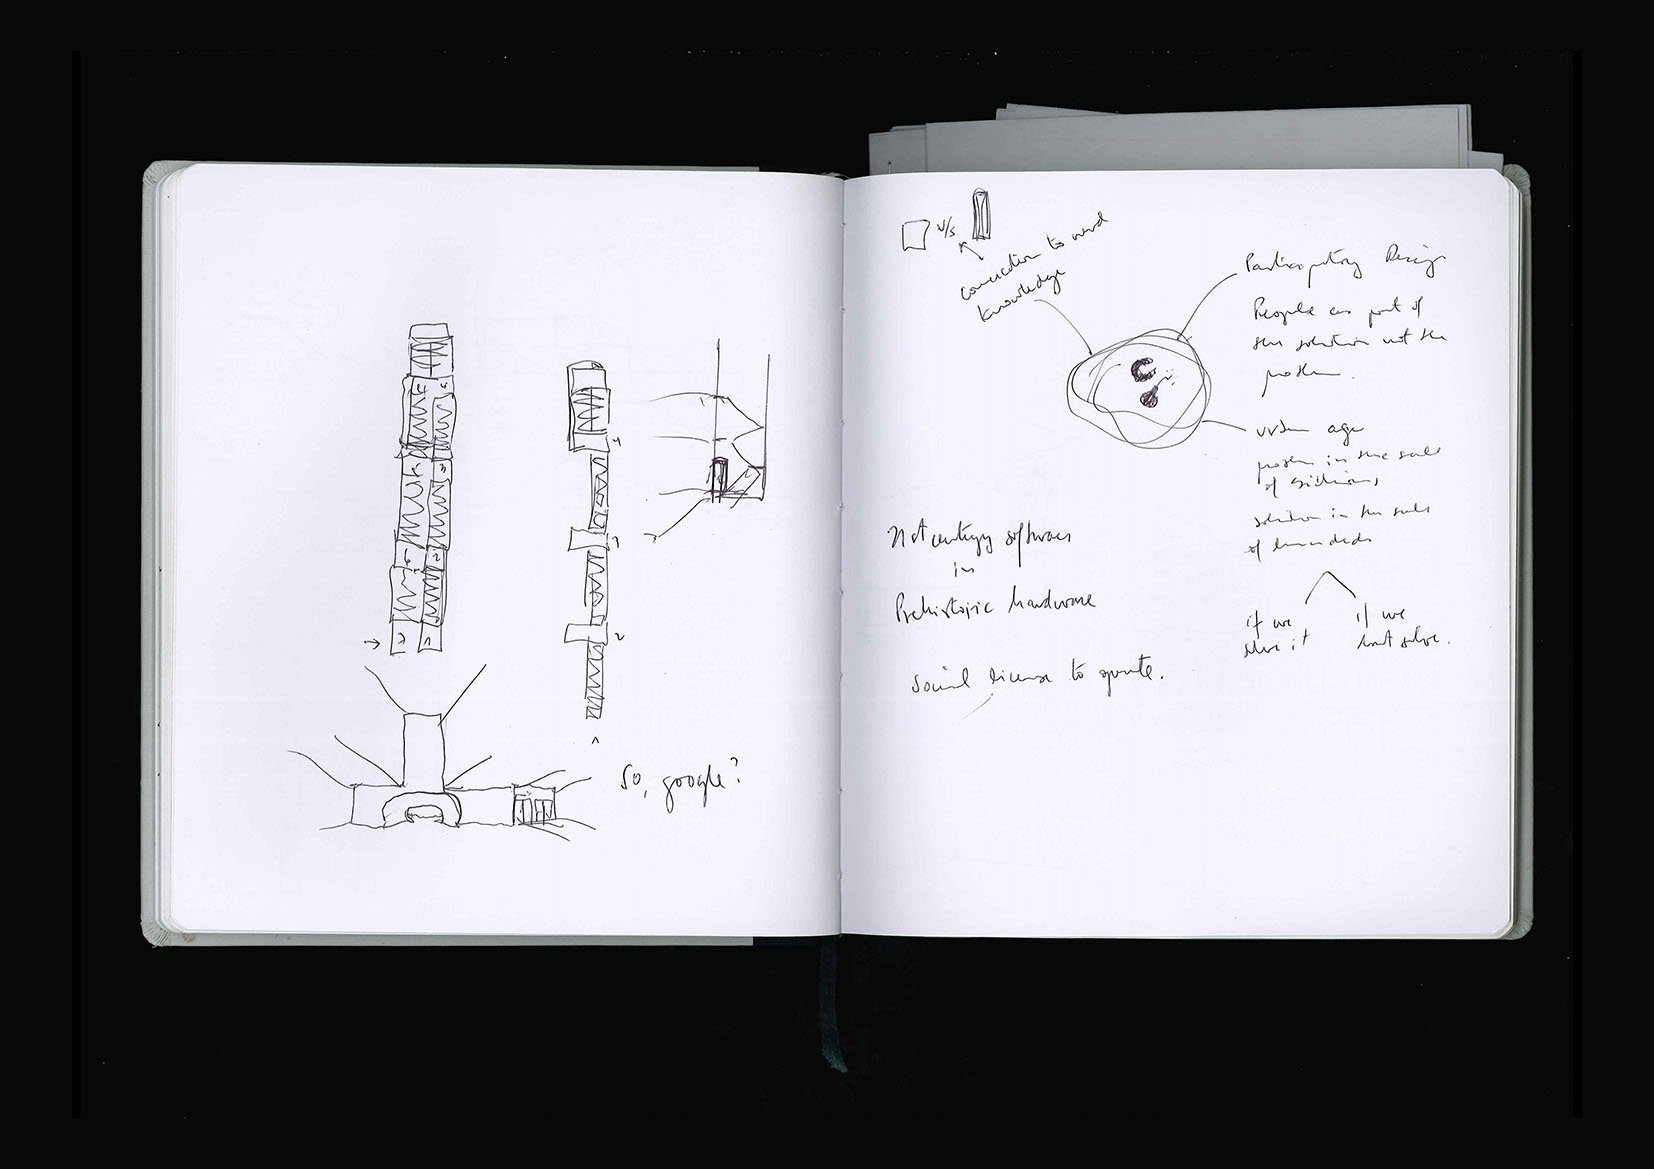 So, google?
v/s
connection to
knowledge
Participatory Design
People as part of
the solution not the
problem.
urban age
problem in the scale
of billions,
solution in the scale
of hundreds
if we
solve it
if we
solve.
software
in
Prehistoric hardware
Social license to operate.